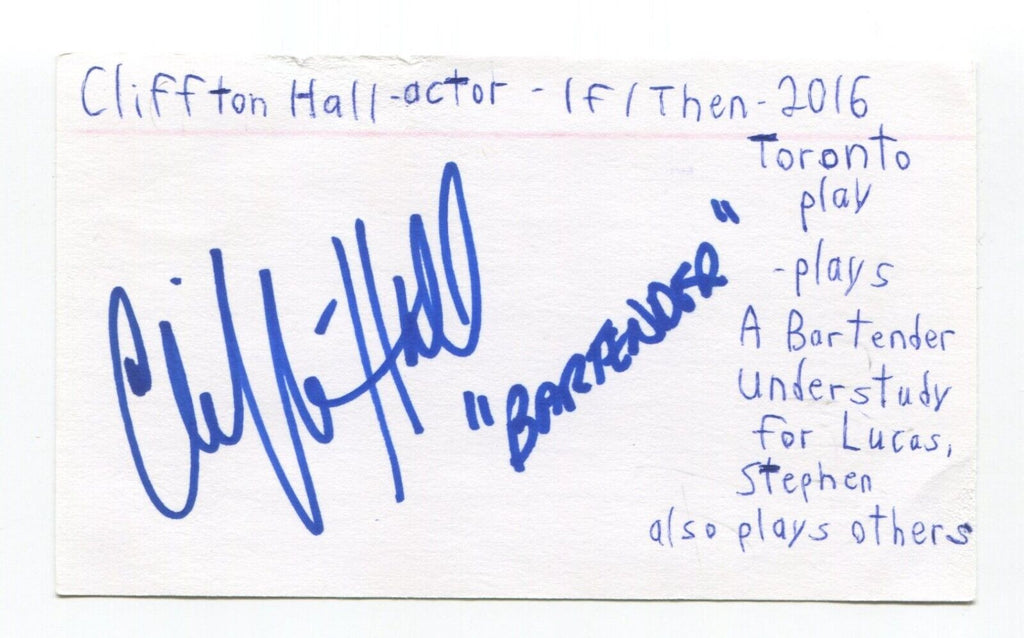 Cliffton Hall-actor - If/Then-2016
Toronto
play
-plays
A Bartender
understudy
for Lucas,
Stephen
also plays others
Cliffton Hall
"BARTENDER"